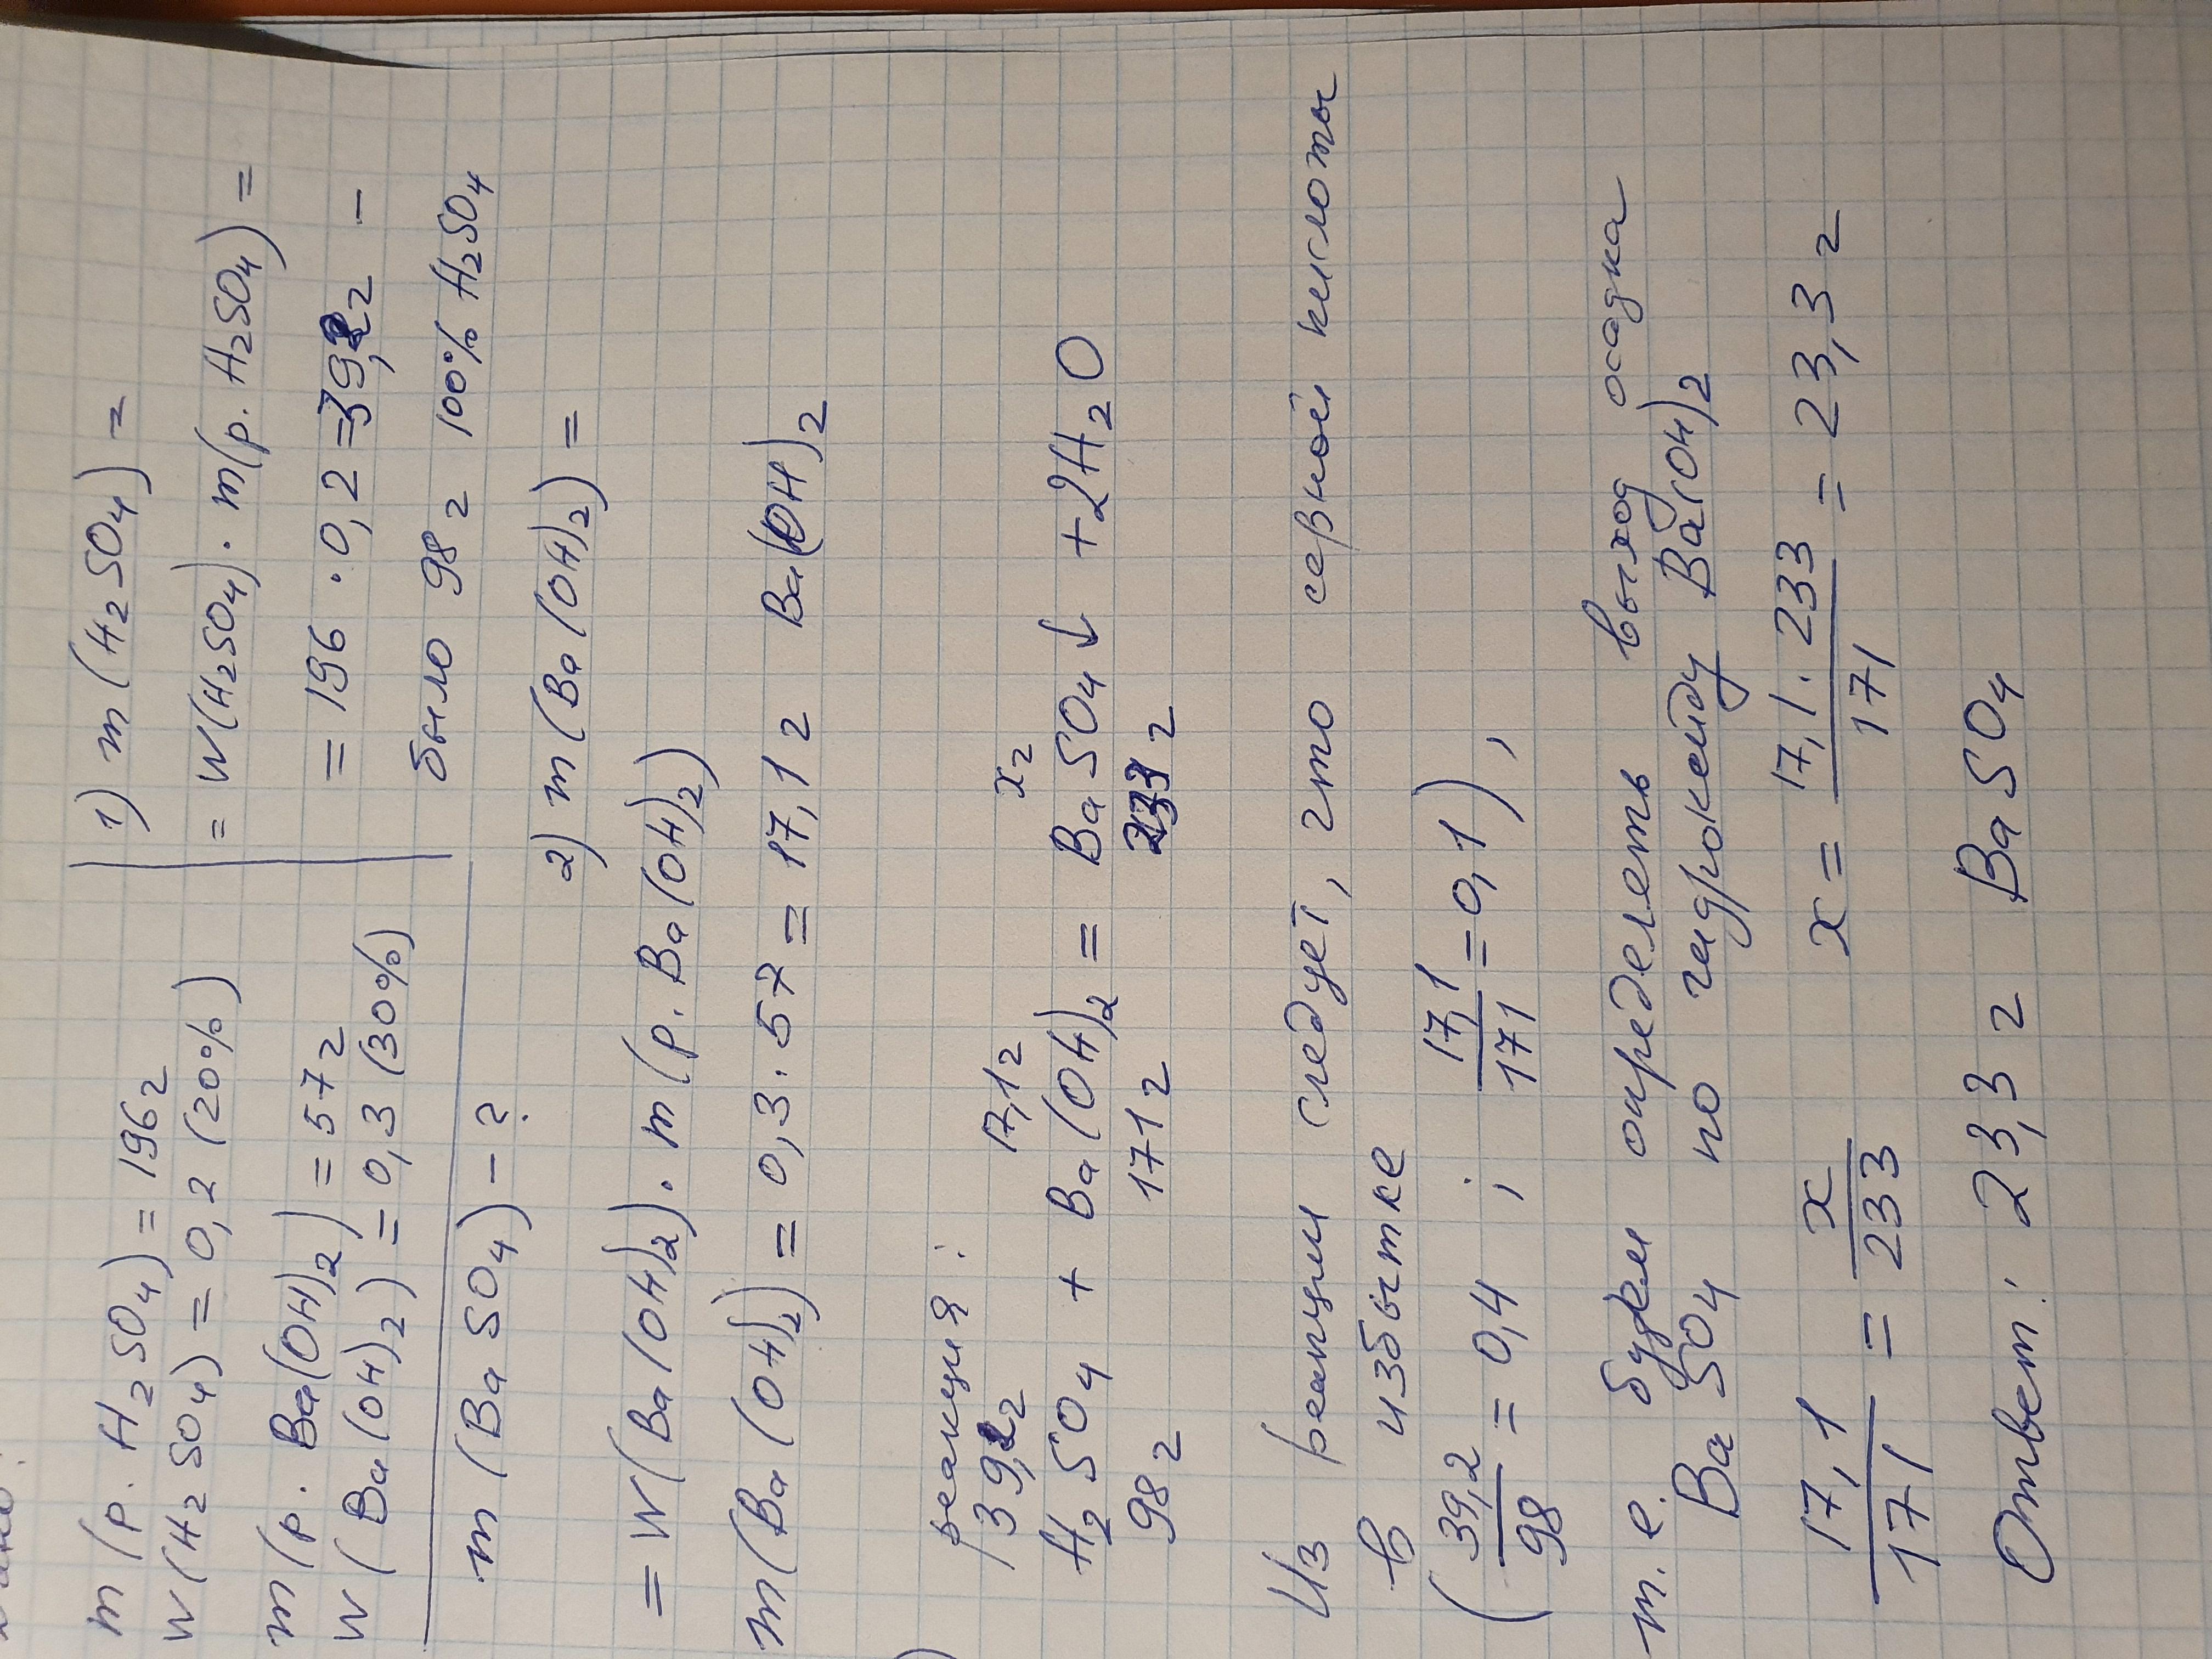 m (р. H₂SO₄) = 196 г
W (H₂SO₄) = 0,2 (20%)
m (р. Ba(OH)₂) = 57 г
W (Ba(OH)₂) = 0,3 (30%)
m (BaSO₄) - ?
1) m (H₂SO₄) =
= W(H₂SO₄) · m(р. H₂SO₄) =
= 196 · 0,2 = 39,2 г -
было 98 г 100% H₂SO₄
2) m (Ba(OH)₂) =
= W (Ba(OH)₂) · m (р. Ba(OH)₂)
m (Ba(OH)₂) = 0,3 · 57 = 17,1 г Ba(OH)₂
реакция:
39,2 г 17,1 г x г
H₂SO₄ + Ba(OH)₂ = BaSO₄↓ + 2H₂O
98 г 171 г 233 г
Из реакции следует, что серной кислоты
в избытке
(39,2/98 = 0,4 ; 17,1/171 = 0,1),
т.е. будем определять выход осадка
BaSO₄ по гидроксиду Ba(OH)₂
17,1/171 = x/233 x = 17,1 · 233/171 = 23,3 г
Ответ: 23,3 г BaSO₄